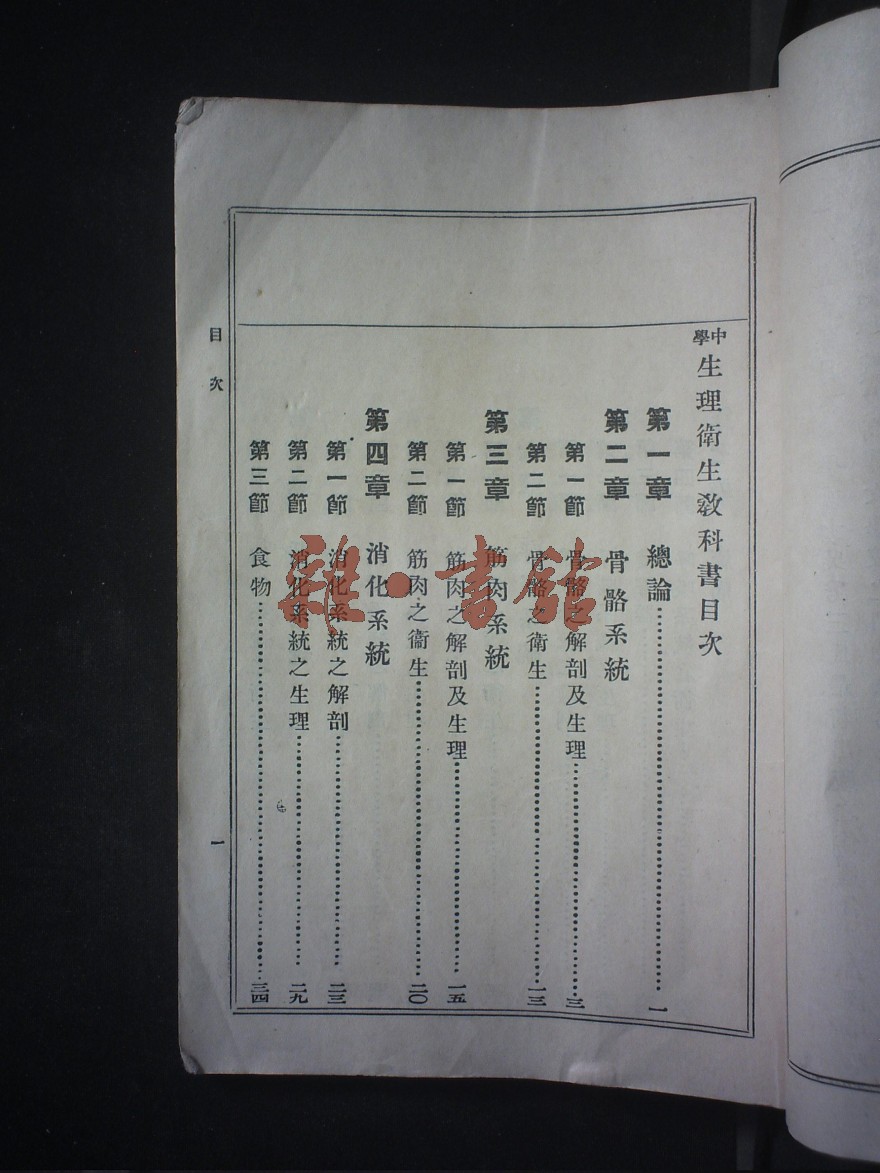 中學生理衛生敎科書目次
第一章 總論……一
第二章 骨骼系統
第一節 骨骼之解剖及生理……三
第二節 骨骼之衛生……一三
第三章 筋肉系統
第一節 筋肉之解剖及生理……一五
第二節 筋肉之衞生……二〇
第四章 消化系統
第一節 消化系統之解剖……二三
第二節 消化系統之生理……二九
第三節 食物……三四
目次
一
雜·書館